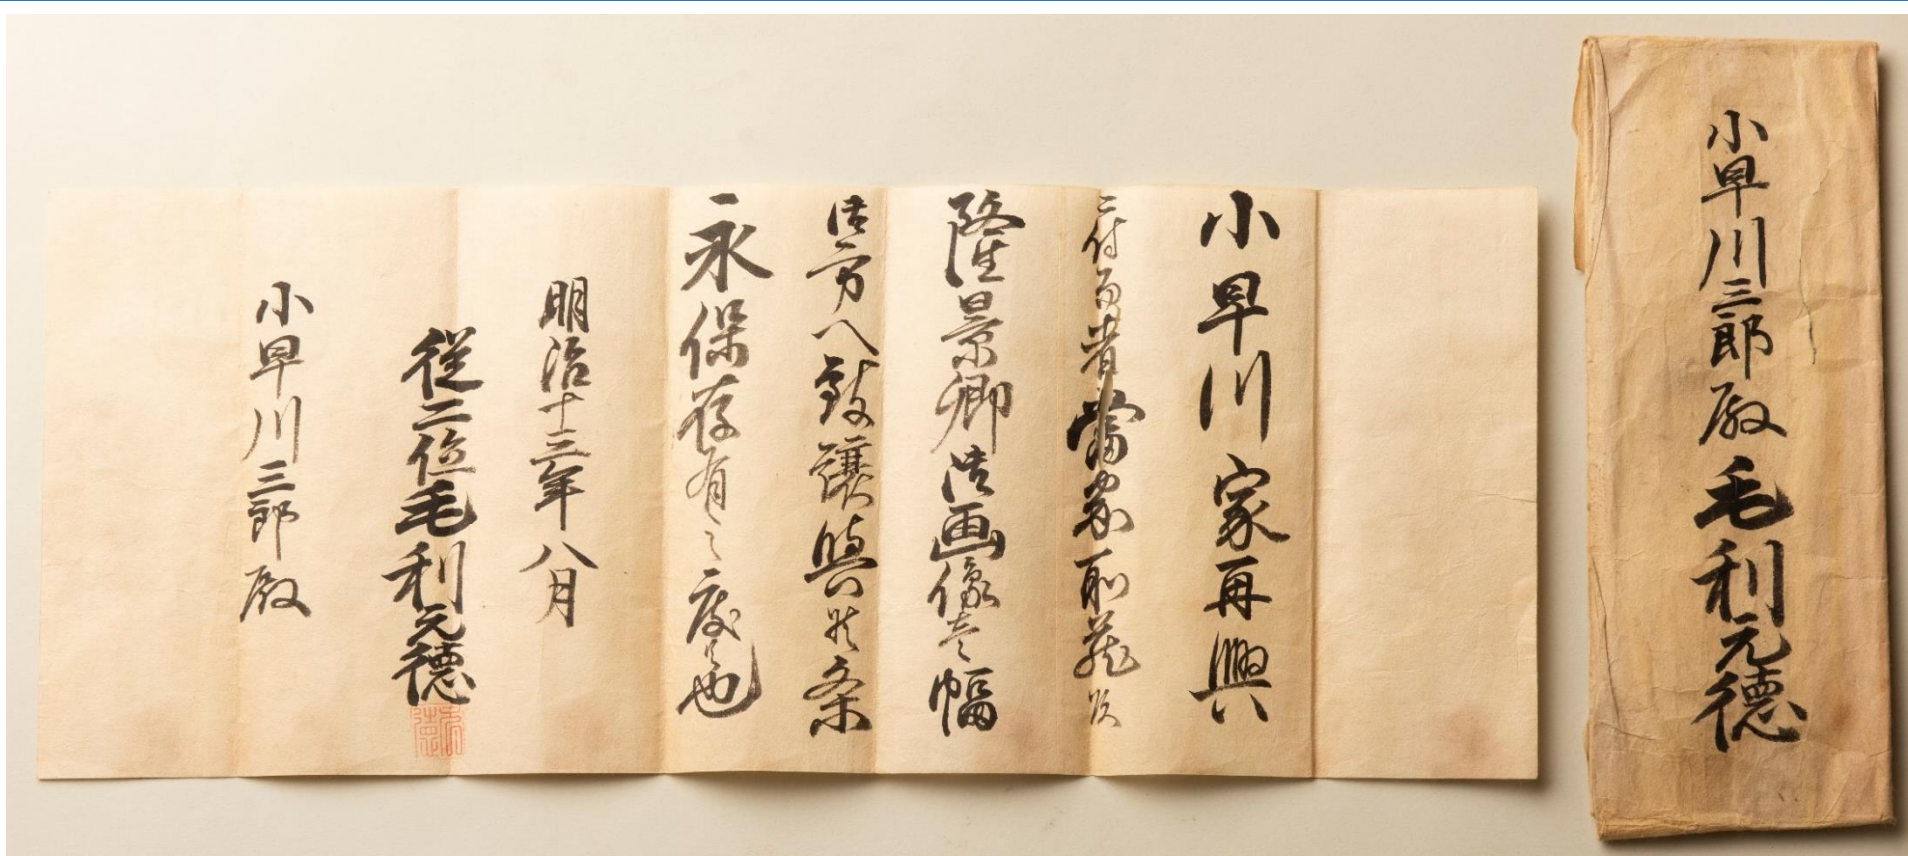 小早川三郎殿 毛利元徳
小早川家再興
ニ付而者當家所蔵
隆景卿御画像壱幅
御方へ致譲與候条
永保存有之度候也
明治十三年八月
従二位毛利元徳
小早川三郎殿